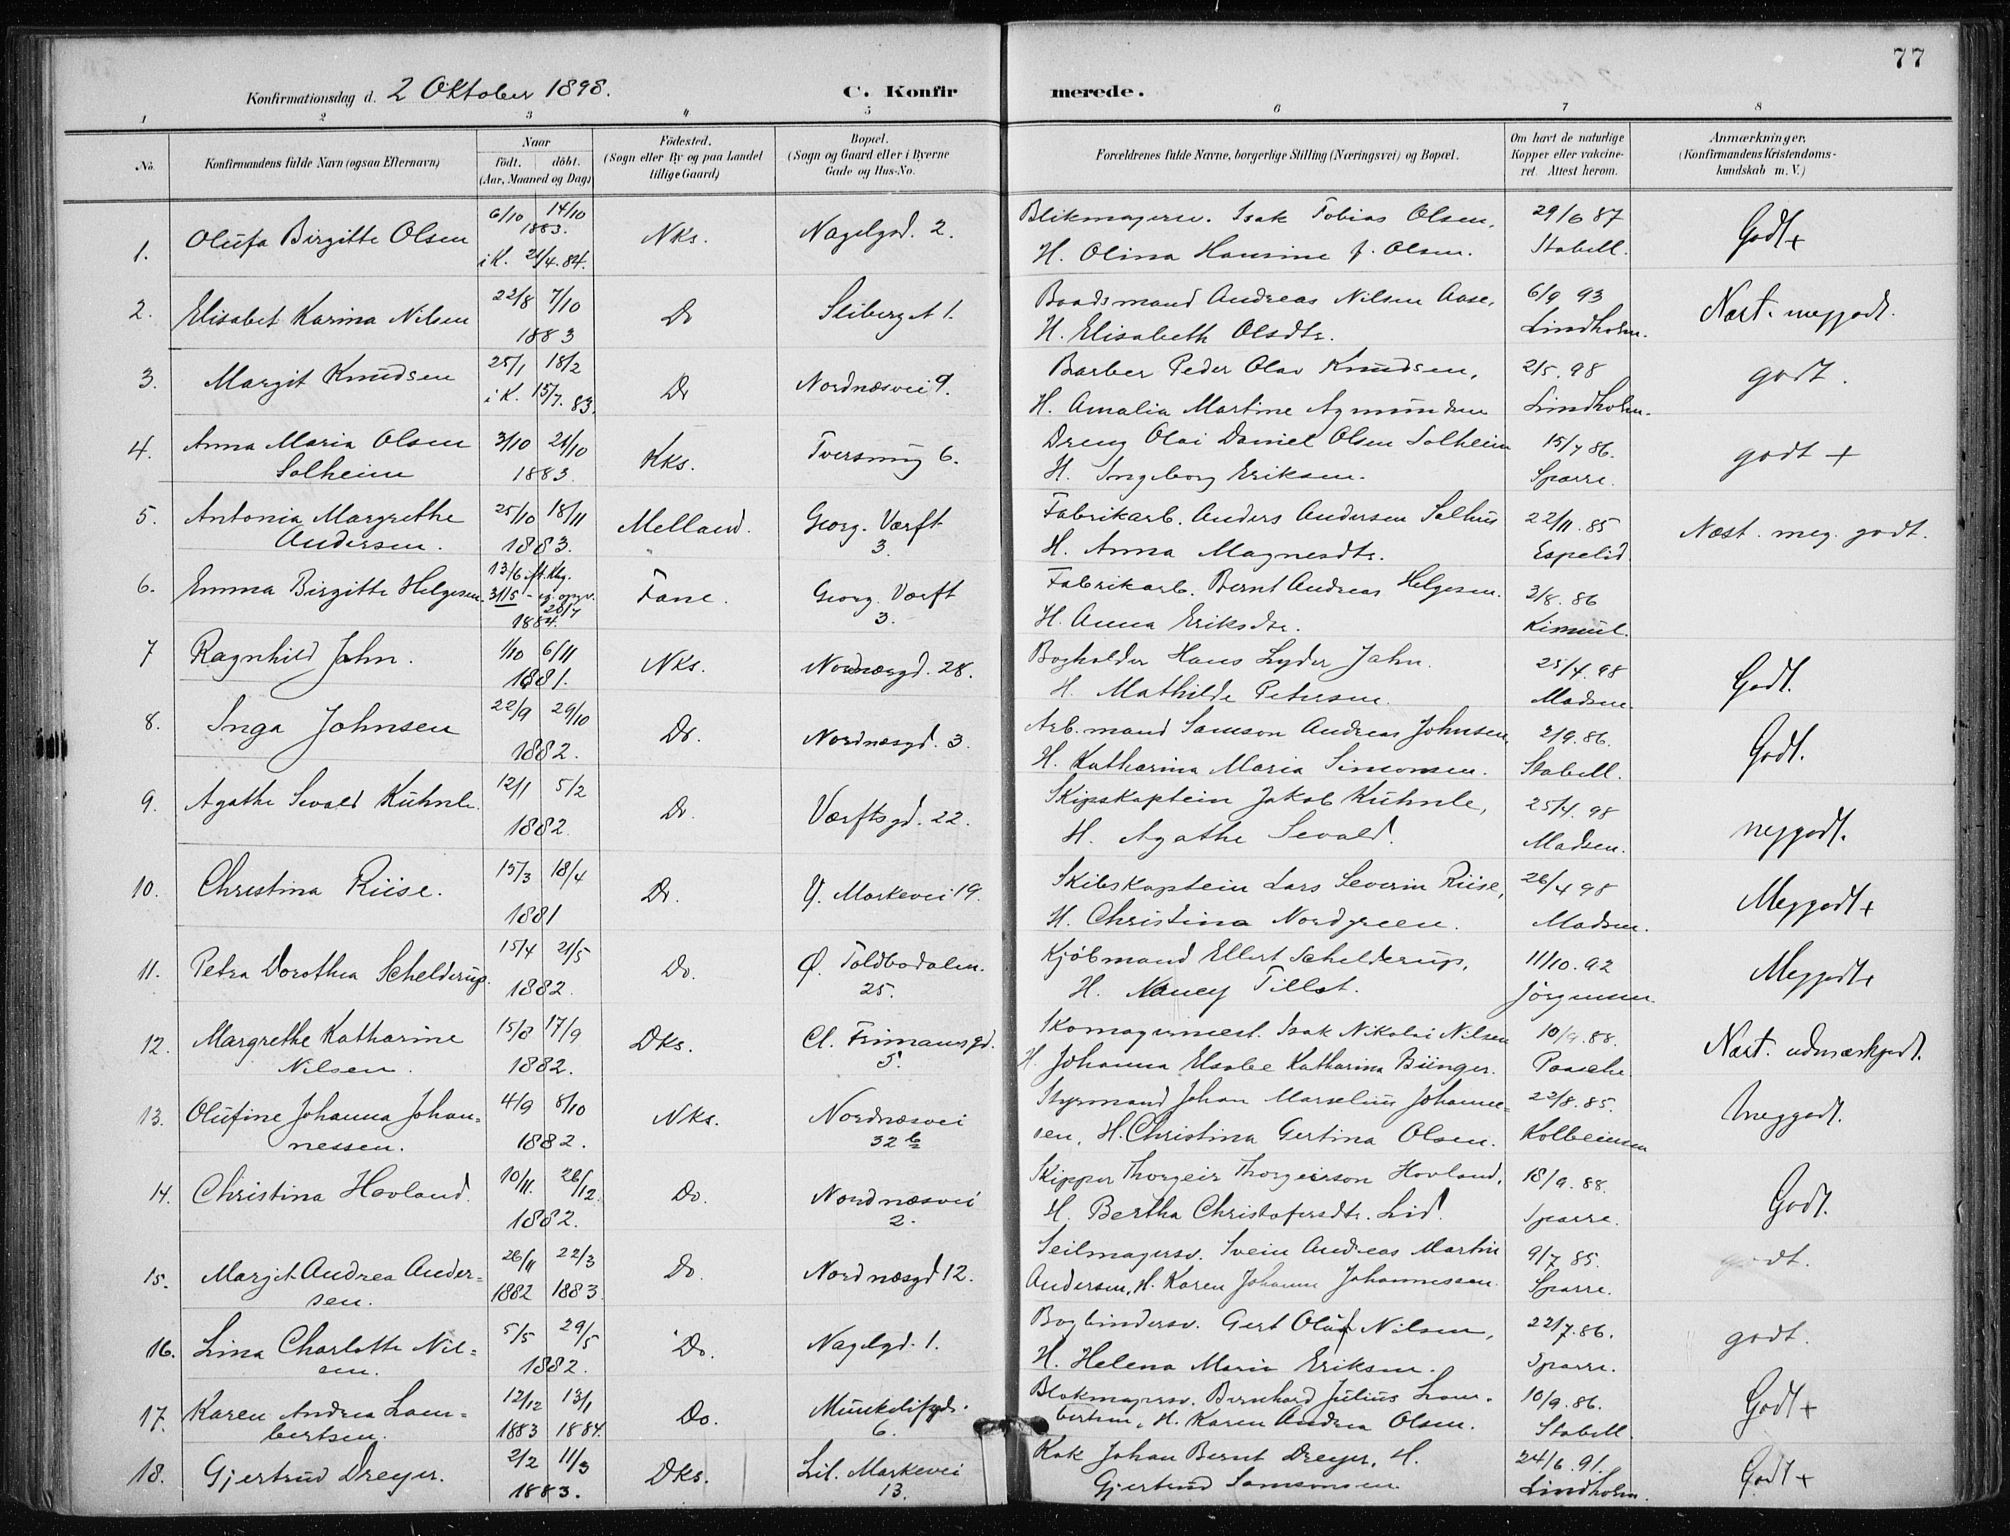 77
Konfirmationsdag d. 2 Oktober 1898.
C. Konfirmerede.
1 2 3 4 5 6 7 8
No.
Konfirmandens fulde Navn (ogsaa Efternavn)
Naar
födt. döbt.
(Aar, Maaned og Dag)
Födested.
(Sogn eller By og paa Landet
tillige Gaard)
Bopæl.
(Sogn og Gaard eller i Byerne
Gade og Hus-No.
Forældrenes fulde Navne, borgerlige Stilling (Næringsvei) og Bopæl.
Om havt de naturlige
Kopper eller vakcine-
ret. Attest herom.
Anmærkninger,
(Konfirmandens Kristendoms-
kundskab m. V.)
1. Olufa Birgitte Olsen 6/10 14/10 Nks. Nagelgd. 2. Blikmagersv. Isak Tobias Olsen, 29/6 87 Godt+
1883.
i K. 21/4.84. H. Olina Hansine f. Olsen. Stabell.
2. Elisabet Karina Nilsen 22/8 7/10 Do Sliberget 1. Baadsmand Andreas Nilsen Aase, 6/9 93 Næst. meg godt.
1883 H. Elisabeth Olsdtr. Lindholm.
3. Margit Knudsen 25/1 18/2 Do Nordnæsvei 9. Barber Peder Olav Knudsen, 2/5.98 godt.
i K. 15/7.83. H. Amalia Martine Agmundsen Lindholm.
4. Anna Maria Olsen 3/10 21/10 Kks. Tversmug 6. Dreng Olai Daniel Olsen Solheim 15/7 86. godt +
Solheim 1883. H. Ingeborg Eriksen. Sparre.
5. Antonia Margrethe 25/10 18/11 Melland. Georg. Værft Fabrikarb. Anders Andersen Salhus 22/11.85 Næst. meg. godt.
Andersen. 1883. 3. H. Anna Magnesdtr. Espelid.
6. Emma Birgitte Helgesen. 13/6 Fane. Georg. Værft Fabrikarb. Bernt Andreas Helgesen. 3/8.86
31/5
1884. 3. H. Anna Eriksdtr.
7 Ragnhild Jahn. 1/10 6/11 Nks. Nordnæsgd. 28. Bogholder Hans Lyder Jahn. 25/4.98 Godt.
1881. H. Mathilde Petersen. Madsen.
8. Inga Johnsen 22/9 29/10 Do. Nordnæsgd. 3. Arb.mand Samson Andreas Johnsen, 2/9.86. Godt.
1882. H. Katharina Maria Simonsen. Stabell.
9. Agathe Sevald Kühnle. 12/1 5/2 Do. Værftsgd. 22. Skipskaptein Jakob Kühnle, 25/4.98 meggodt.
1882. H. Agathe Sevald. Madsen.
10. Christina Riise. 15/3 18/4 Do. V. Markevei 19. Skibskaptein Lars Severin Riise, 26/4 98 Meggodt+
1881 H. Christina Nordgreen. Madsen.
11. Petra Dorothea Schelderup. 15/4 21/5 Do. Ø. Toldbodalm. Kjøbmand Ellert Schelderup, 11/10.92 Meggodt+
1882. 25. H. Nancy Jörgensen
12. Margrethe Katharine 15/8 17/9 Dks. Cl. Frimansgd. Skomagermest. Isak Nikolai Nilsen 10/9.88. Næst. udmærketgodt.
Nilsen. 1882. 5. H. Johanna Elsabe Katharina Bünger. Paasche.
13. Olufine Johanna Johan= 4/9 8/10 Nks. Nordnæsvei Styrmand Johan Marselius Johanne= 22/8.85. meggodt.
nessen. 1882. 32 b sen, H. Christina Gertina Olsen. Kolbeinsen
14. Christina Hovland. 10/11. 26/12. Do. Nordnæsvei Skipper Thorgeir Thorgeirson Hovland, 18/9.88. Godt.
1882. 2. H. Bertha Christofersdtr. Lid. Sparre.
15. Margit Andrea Ander= 26/11 22/3 Do. Nordnæsgd 12. Seilmagersv. Svein Andreas Martin 9/7 85. godt.
sen. 1882 1883. Andersen, H. Karen Johanne Johannessen. Sparre.
16. Lina Charlotte Nil= 5/5 29/5 Do. Nagelgd. 1. Bogbindersv. Gert Oluf Nilsen, 22/7.86. godt.
sen. 1882. H. Helena Maria Eriksen. Sparre.
17. Karen Andrea Lam= 12/12 13/1 Do. Munkelifgd. Blokmagersv. Bernhard Julius Lam= 10/9.86. Godt+
bertsen. 1883 1884. 6. bertsen, H. Karen Andrea Olsen. Stabell.
18. Gjertrud Dreyer. 2/2 11/3 Dks. Lil. Markevei Kok Johan Bernt Dreyer, H. 24/6.91. Godt+
1883. 13. Gjertrud Samsonsen Lindholm.